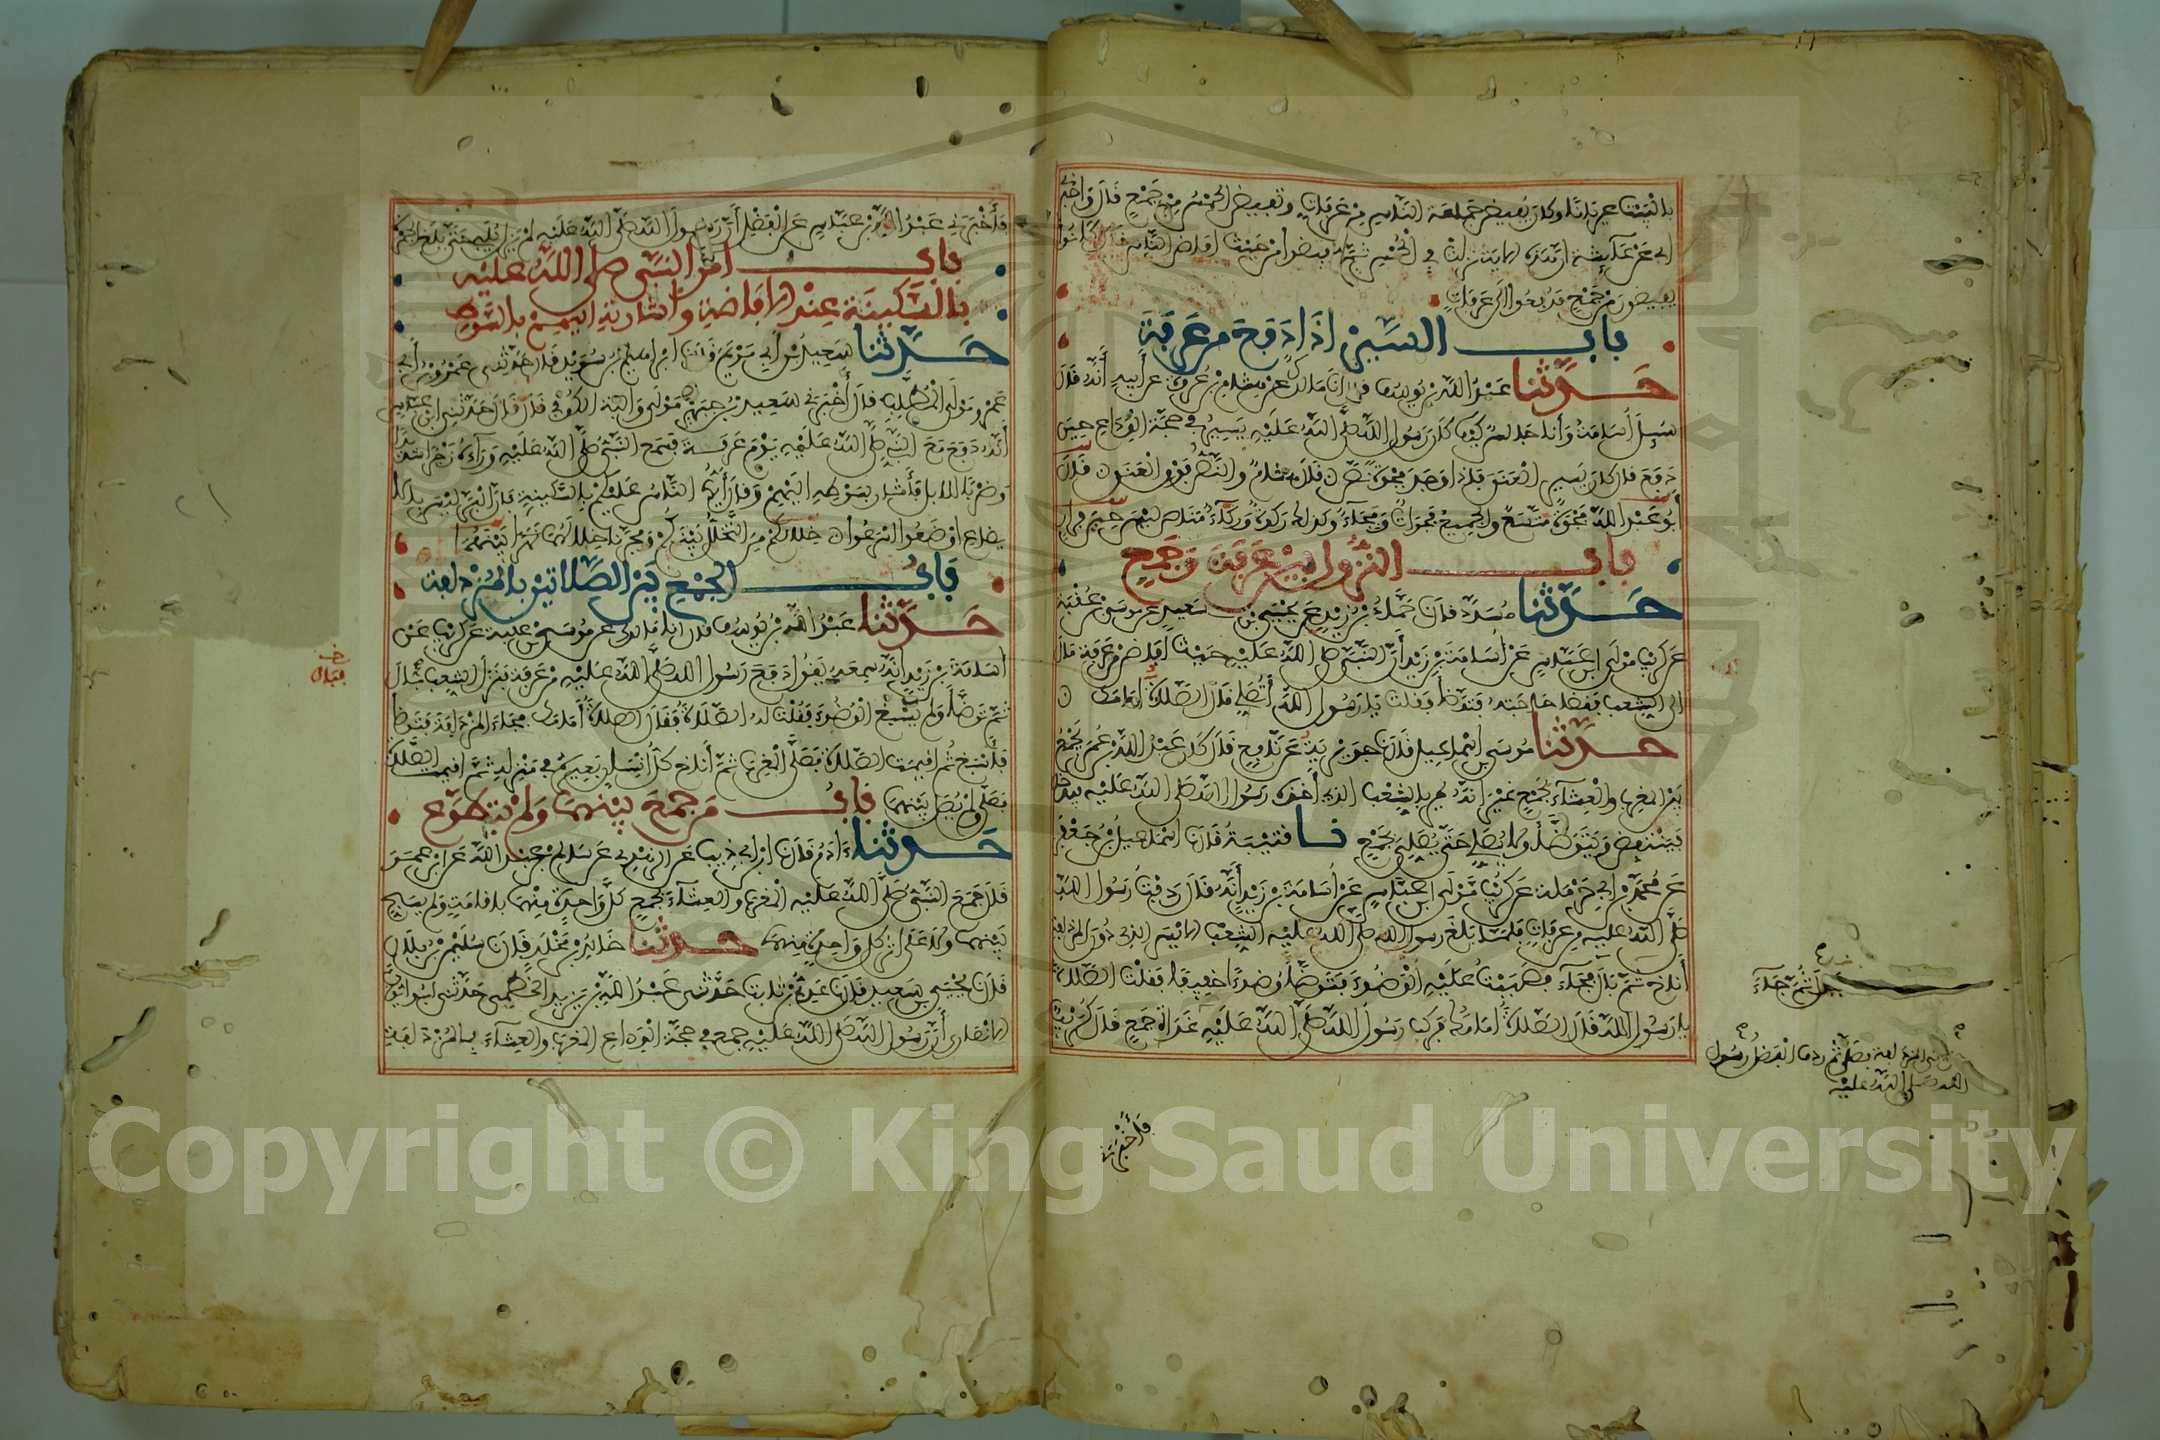 بالبيت عريانا وكان يفيض جماعة الناس من عرفات وتفيض الحمس من جمع قال واخبرني
ابي عن عائشة ان هذه الاية نزلت في الحمس ثم افيضوا من حيث افاض الناس قال كانوا
يفيضون من جمع فدفعوا الى عرفات
باب السير اذا دفع من عرفة
حدثنا عبد الله بن يوسف قال انا مالك عن هشام بن عروة عن أبيه أنه قال
سيل أسامة وأنا جالس كيف كان رسول الله صلى الله عليه يسير في حجة الوداع حين
دفع قال كان يسير العنق فاذا وجد فجوة نص قال هشام والنص فوق العنق قال
أبو عبد الله فجوة متسع والجميع فجوات وفجاء وكذلك ركوة وركاء مناص ليس حين فرار
باب النزول بين عرفة وجمع
حدثنا مسدد قال نا حماد بن زيد عن يحيى بن سعيد عن موسى بن عقبة
عن كريب مولى ابن عباس عن أسامة بن زيد أن النبي صلى الله عليه حيث أفاض من عرفة مال
الى الشعب فقضى حاجته فتوضأ فقلت يا رسول الله أتصلي قال الصلاة امامك
حدثنا موسى بن اسماعيل قال نا جويرية عن نافع قال كان عبد الله بن عمر يجمع
بين المغرب والعشاء بجمع غير انه يمر بالشعب الذي أخذه رسول الله صلى الله عليه فيدخل
فينتفض ويتوضأ ولا يصلي حتى يصلي بجمع نا قتيبة قال نا اسماعيل بن جعفر
عن محمد بن ابي حرملة عن كريب مولى ابن عباس عن أسامة بن زيد أنه قال ردفت رسول الله
صلى الله عليه من عرفات فلما بلغ رسول الله صلى الله عليه الشعب الايسر الذي دون المزدلفة
أناخ ثم بال فجاء فصببت عليه الوضوء فتوضأ وضوءا خفيفا فقلت الصلاة
يا رسول الله قال الصلاة امامك فركب رسول الله صلى الله عليه غداة جمع قال كريب
ثم جاء
المزدلفة فصلى ثم ردف الفضل رسول
الله صلى الله عليه
فأخبرني
فأخبرني عبد الله بن عباس عن الفضل أن رسول الله صلى الله عليه لم يزل يلبي حتى بلغ الجمرة
باب امر النبي صلى الله عليه
بالسكينة عند الافاضة واشارته اليهم بالسوط
حدثنا سعيد بن أبي مريم قال نا ابراهيم بن سويد قال حدثني عمرو بن أبي
عمرو مولى المطلب قال أخبرني سعيد بن جبير مولى والبة الكوفي قال حدثني ابن عباس
أنه دفع مع النبي صلى الله عليه يوم عرفة فسمع النبي صلى الله عليه وراءه زجرا شديدا
وضربا للابل فأشار بسوطه اليهم وقال أيها الناس عليكم بالسكينة فان البر ليس بالا
يضاع اوضعوا اسرعوا خلالكم من التخلل بينكم وفجرنا خلالهما نهرا بينهما
باب الجمع بين الصلاتين بالمزدلفة
حدثنا عبد الله بن يوسف قال انا مالك عن موسى بن عقبة عن كريب عن
أسامة بن زيد انه سمعه يقول دفع رسول الله صلى الله عليه من عرفة فنزل الشعب فبال
ثم توضأ ولم يسبغ الوضوء فقلت له الصلاة فقال الصلاة أمامك فجاء المزدلفة فتوضأ
فأسبغ ثم اقيمت الصلاة فصلى المغرب ثم أناخ كل انسان بعيره في منزله ثم اقيمت الصلاة
فصلى ولم يصل بينهما باب من جمع بينهما ولم يتطوع
حدثنا ءادم قال نا ابن ابي ذيب عن الزهري عن سالم بن عبد الله عن ابن عمر
قال جمع النبي صلى الله عليه المغرب والعشاء بجمع كل واحدة منهما باقامة ولم يسبح
بينهما ولا على اثر كل واحدة منهما حدثنا خالد بن مخلد قال نا سليمن بن بلال
قال نا يحيى بن سعيد قال نا عدي بن ثابت حدثني عبد الله بن يزيد الخطمي حدثني ابو ايوب
الانصاري أن رسول الله صلى الله عليه جمع في حجة الوداع المغرب والعشاء بالمزدلفة
فبال
Copyright © King Saud University